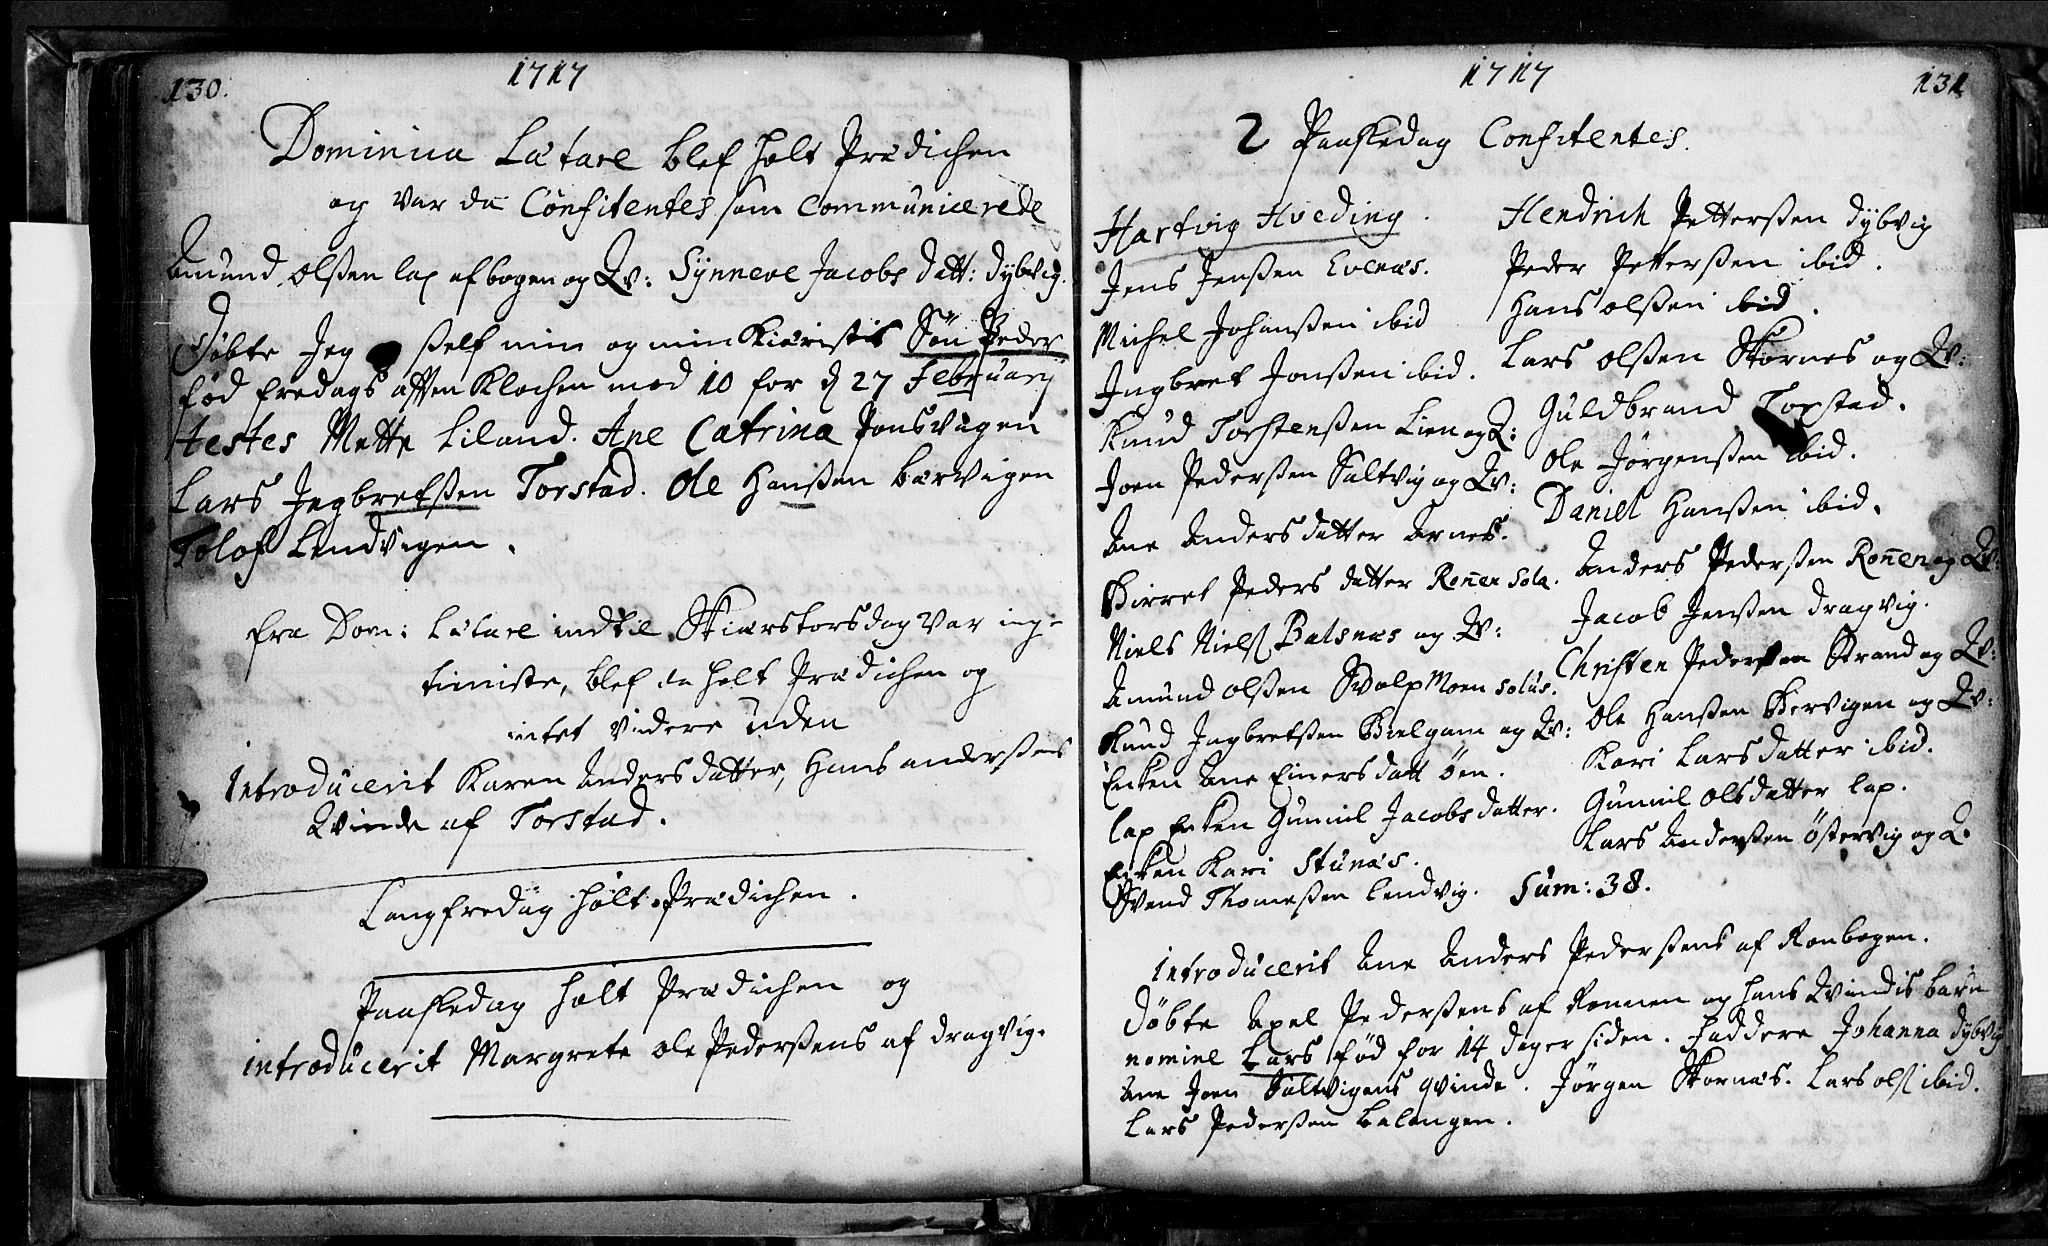 130.
1717
Dominica Lætare blef holt Prædichen
og var da Confitentes som communicerede
Amund olßen lap ofbogen og Qv: Synneve Jacobs datt: dybvig.
Døbte Jeg ßelf min og min Kiæristis Søn Peder
fød fredags afften Klochen mod 10 for d 27 February
testes Mette Liland. Ane Catrina Ponsvigen
Lars Jngbretßen Torstad. Ole Hanßen Barvigen
Tolof Lendvigen.
fra Dom: Lætare indtil Skiærstorsdag var ing-
timiste, blef da holt Prædichen og
intet videre uden
Introducerit Karen Andersdatter, Hans anderßens
Qvinde af Torstad.
Langfredag holt Prædichen.
Paaskedag holt Prædichen og
introducerit Margrete ole Pederßens af dragvig.
1717
131
2 Paaskedag Confitentes.
Hartvig Hveding.
Jens Jenßen Evenæs.
Michel Johanßen ibid
Jngbret Jonßen ibid.
Knud Torstenßen Lien og Q:
Joen Pederßen Saltvig og Qv:
Ane Andersdatter Arnes.
Birret Peders datter Ronen sola.
Niels Niels Balsnæs og Qv:
Amund olßen Skolpmoen solus.
Knud Jngbretßen Bielgam og Qv:
Enken Ane Einersdatt øen.
lap Enken Gunnil Jacobsdatter.
Enken Kari Stunæs.
Svend Thomeßen lendvig.
Hendrich Petterßen dybvig
Peder Petterßen ibid.
Hans olßen ibid.
Lars olßen Skornes og Qv:
Guldbrand Torstad.
Ole Jørgenßen ibid.
Daniel Hanßen ibid.
Anders Pederßen Ronen og Qv:
Jacob Jenßen dragvig.
Christen Pederßen Strand og Qv:
Ole Hanßen Bervigen og Qv:
Kari Larsdatter ibid.
Gunnil olsdatter lap.
Lars Anderßen østervig og Q.
Sum: 38.
Introducerit Ane Anders Pederßens af Ronbogen.
Døbte Axel Pederßens af Ronnen og hans Qvindis barn
nomine Lars fød for 14 dager siden. Faddere Johanna dybvig
Ane Joen Saltvigens qvinde. Jørgen Skornæs. Lars ols ibid.
Lars Pederßen Balangen.